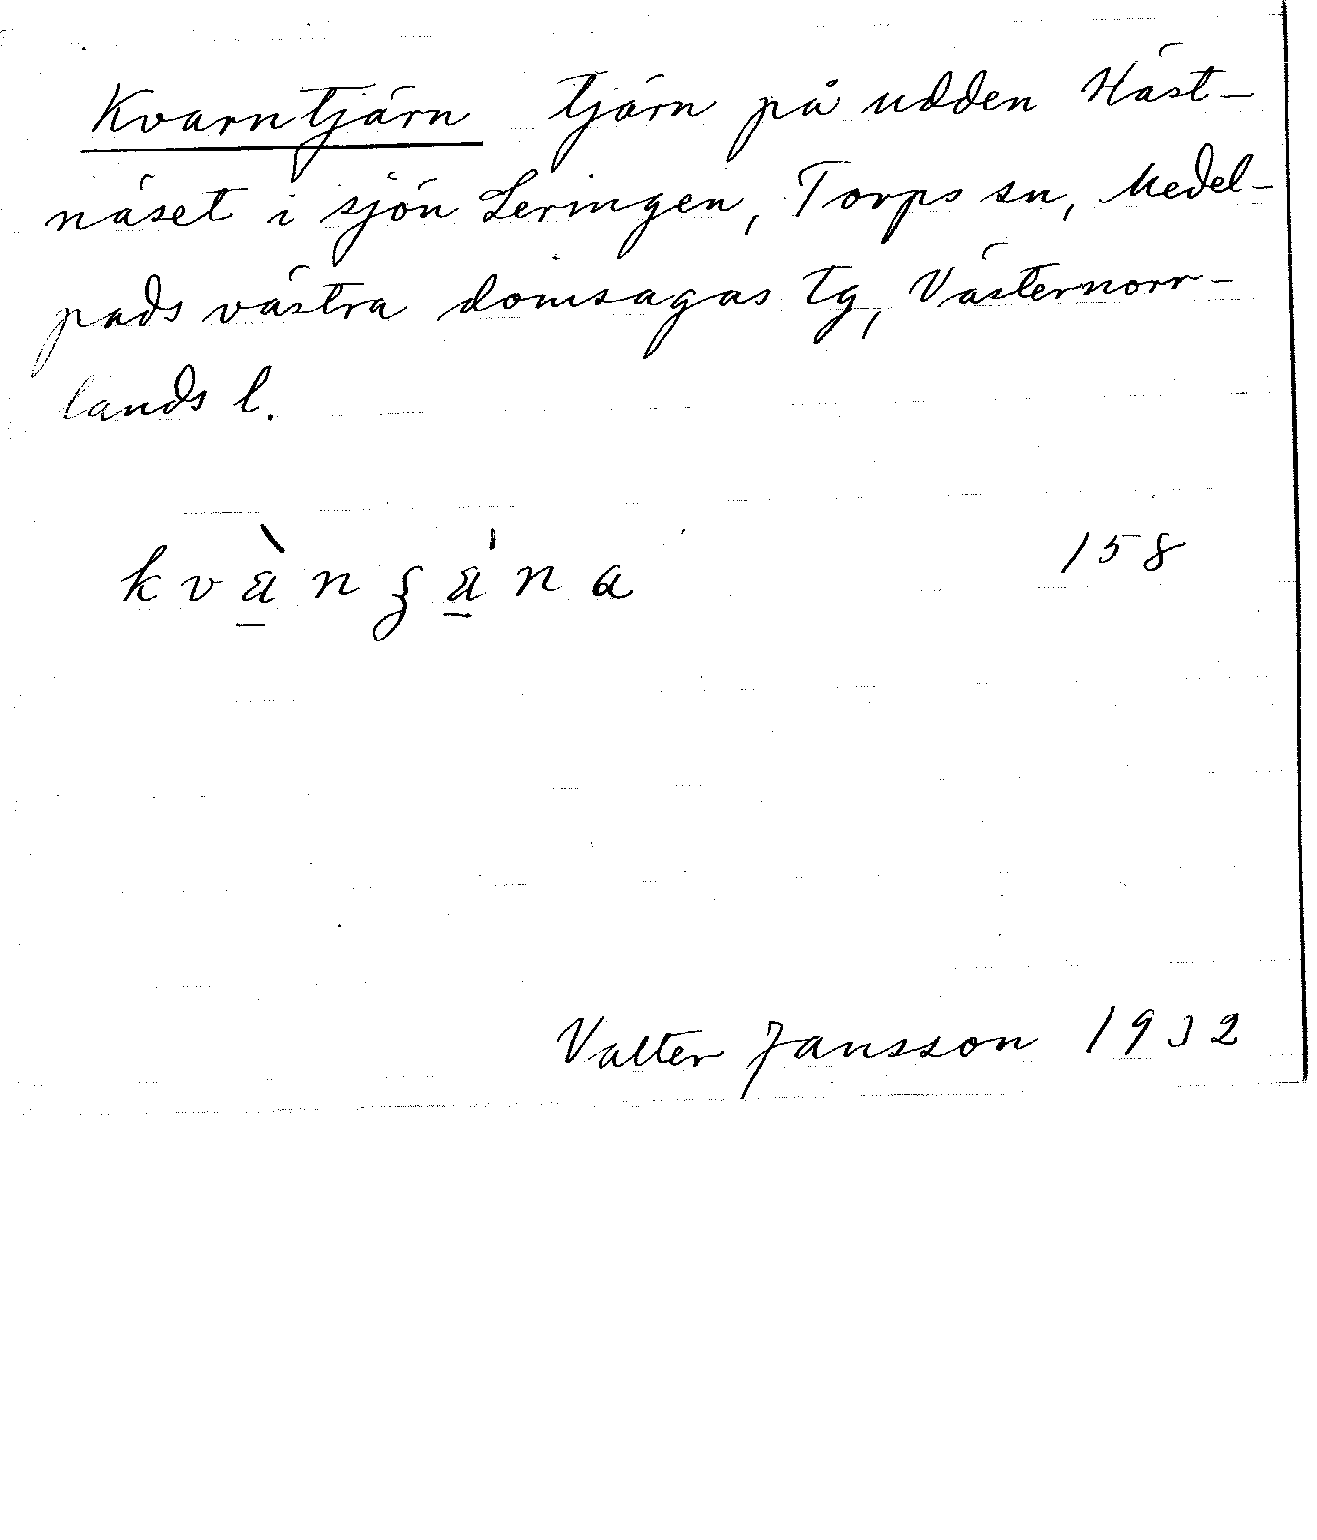 Kvarntjärn tjärn på udden Häst-
näset i sjön Leringen, Torps sn, Medel-
pads västra domsagas tg, Västernorr-
lands l.
158
Valter Jansson 1932